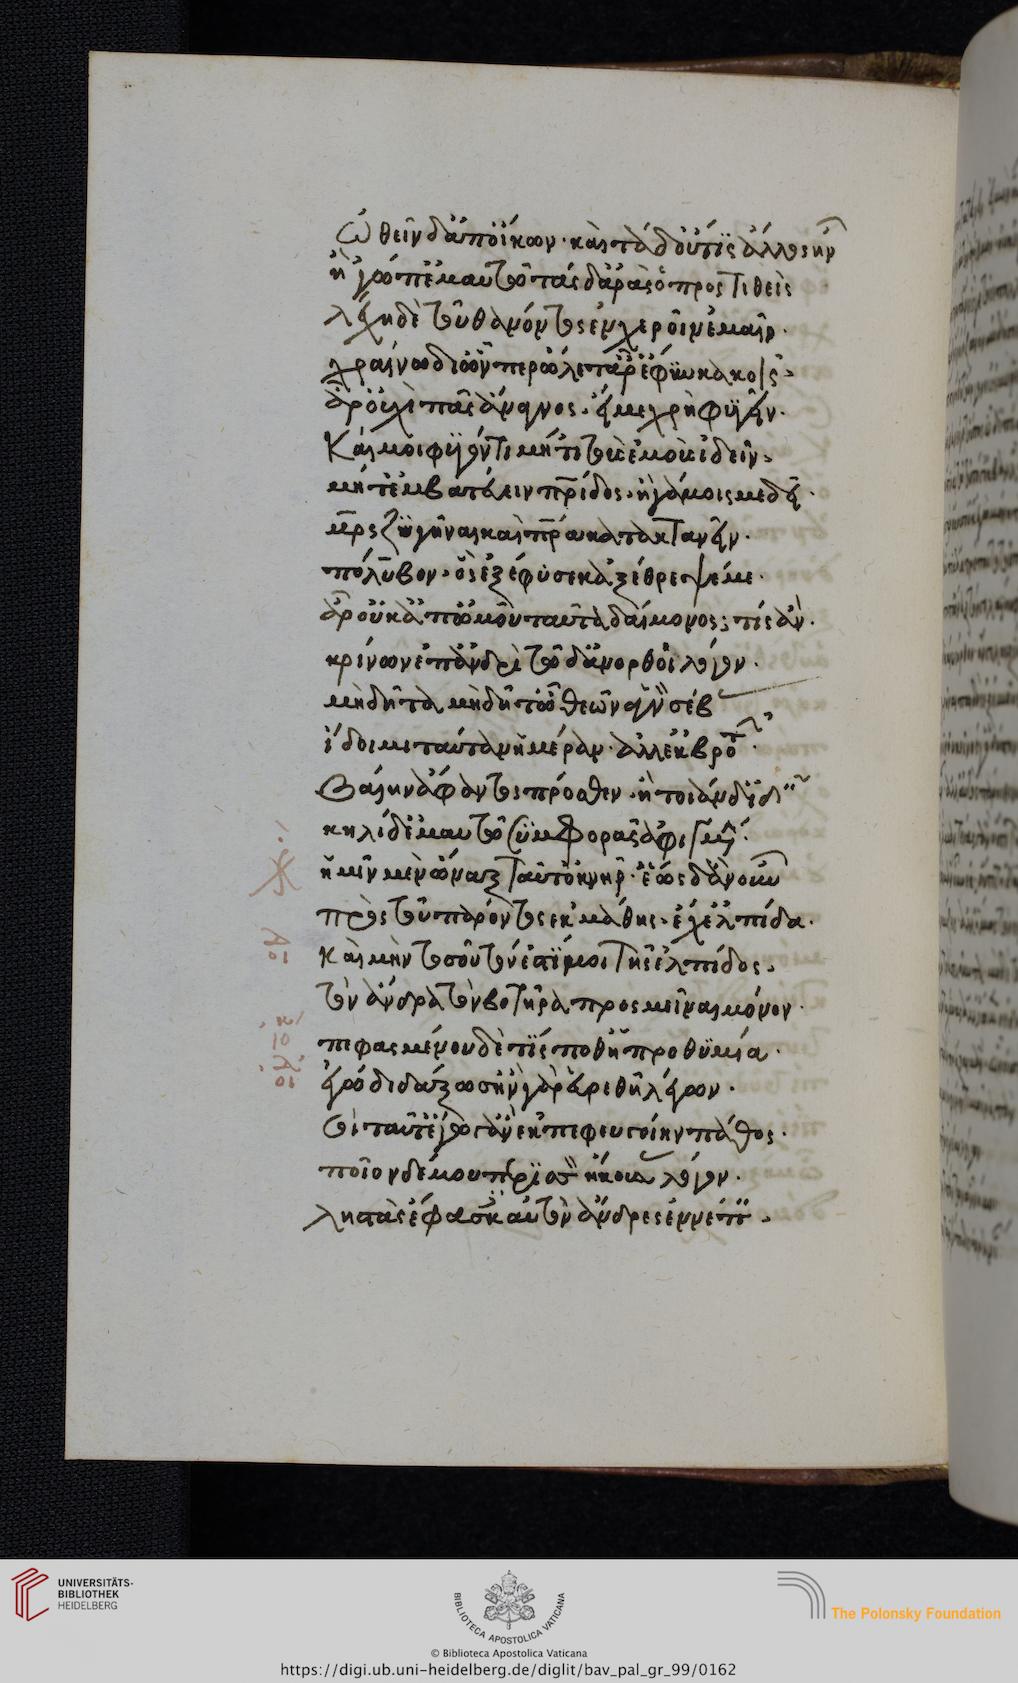 ὠθεῖν δ' ἀπ' οἴκων· καὶ τάδ' οὔτις ἄλλος ἦν
ἢ 'γὼ 'π' ἐμαυτῷ τάσδ' ἀρὰς ὁ προστιθείς
λέχη δὲ τοῦ θανόντος ἐν χεροῖν ἐμαῖν·
χραίνω δι' ὧνπερ ὤλετ' ἆρ' ἔφυν κακός
ἆρ' οὐχὶ πᾶς ἄναγνος· εἴ με χρὴ φυγεῖν·
Καί μοι φυγόντι μή 'στι τοὺς ἐμοὺς ἰδεῖν
μήτ' ἐμβατεύειν πρίδος· ἢ γάμοις με δεῖ·
μρς ζυγῆναι καὶ πρα κατακτανεῖν·
πόλυβον· ὃς ἐξέφυσε κἀξέθρεψέ με·
ἆρ' οὐκ ἀπ' ὠμοῦ ταῦτα δαίμονος; τίς ἄν·
κρίνων ἐπ' ἀνδρὶ τῷδ' ἂν ὀρθοίη λόγον·
μὴ δῆτα μὴ δῆτ' ὦ θεῶν ἁγνὸν σέβ
ἴδοιμι ταύταν ἡμέραν· ἀλλ' ἐκ βροτ
Βαίην ἄφαντος πρόσθεν· ἢ τοιάνδ' ἰδ
κηλῖδ' ἐμαυτῷ συμφορᾶς ἀφιγμ
ἡμῖν μὲν ὦναξ ταῦτ' ὀκνήρ· ἕως δ' ἂν οὖν
πρὸς τοῦ παρόντος ἐκμάθῃς· ἔχ' ἐλπίδα·
Καὶ μὴν τοσοῦτόν ἐστί μοι τῆς ἐλπίδος
τὸν ἄνδρα τὸν βοτῆρα προσμεῖναι μόνον·
πεφασμένου δὲ τίς ποθ' ἡ προθυμία·
ἐγώ διδάξω σ' ἢν γὰρ εὑρεθῇ λέγων·
Σοὶ ταῦτ' ἔγωγ' ἂν ἐκπεφευγοίην πάθος·
ποῖον δέ μου περισσὸν ἤκουσ λόγον·
λῃστὰς ἔφασκ αὐτὸν ἄνδρας ἐννέπ
UNIVERSITÄTS-
BIBLIOTHEK
HEIDELBERG
BIBLIOTECA APOSTOLICA VATICANA
The Polonsky Foundation
© Biblioteca Apostolica Vaticana
https://digi.ub.uni-heidelberg.de/diglit/bav_pal_gr_99/0162